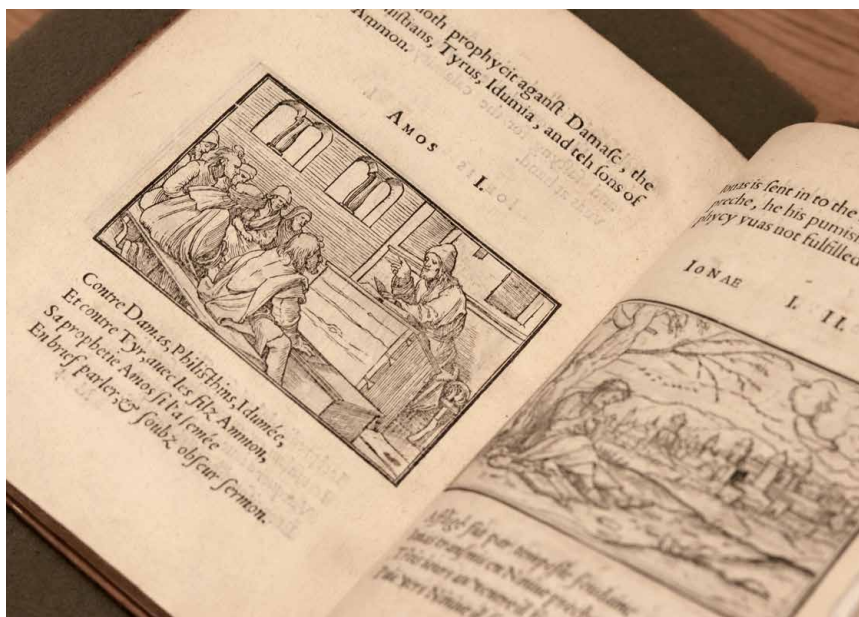 moth prophycit aganſt Damaſc, the
Tyrus, Idumia, and teh ſons of
Ammon.
AMOS I.
Contre Damas, Philiſthins, Idumée,
Et contre Tyr, auec les filz Ammon,
Sa prophetie Amos ſi l'a ſemée
En brief parler, & ſoubz obſcur ſermon.
Ionas is ſent in to the
preche, he his puniſ
phycy vuas not fulfilled
IONAE I. II.
Affligé fut par tempeſte ſoudaine
en Niniue